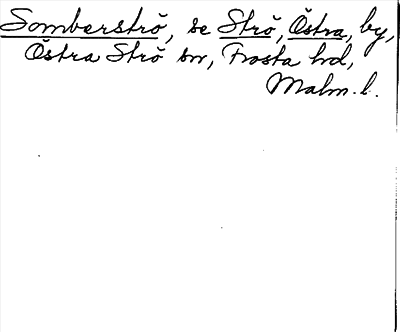 Somberströ, se Strö, Östra, by,
Östra Strö sn, Frosta hd,
Malm. l.